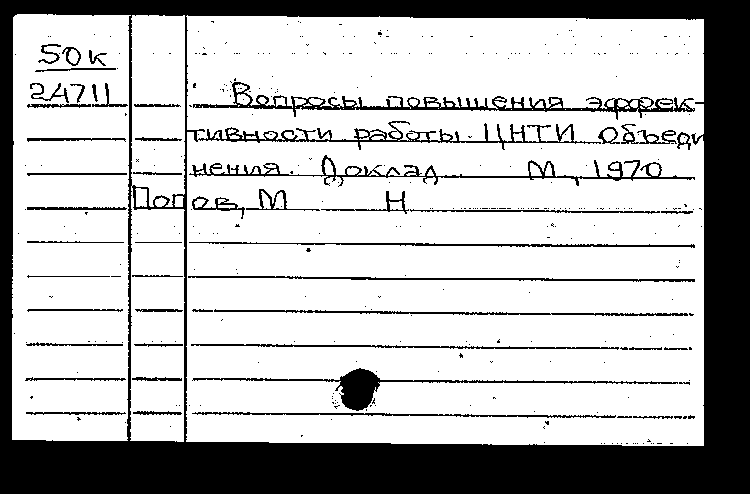 50к
24711
Вопросы повышения эффек-
тивности работы ЦНТИ объеди
нения. Доклад М., 1970.
Попов, М Н